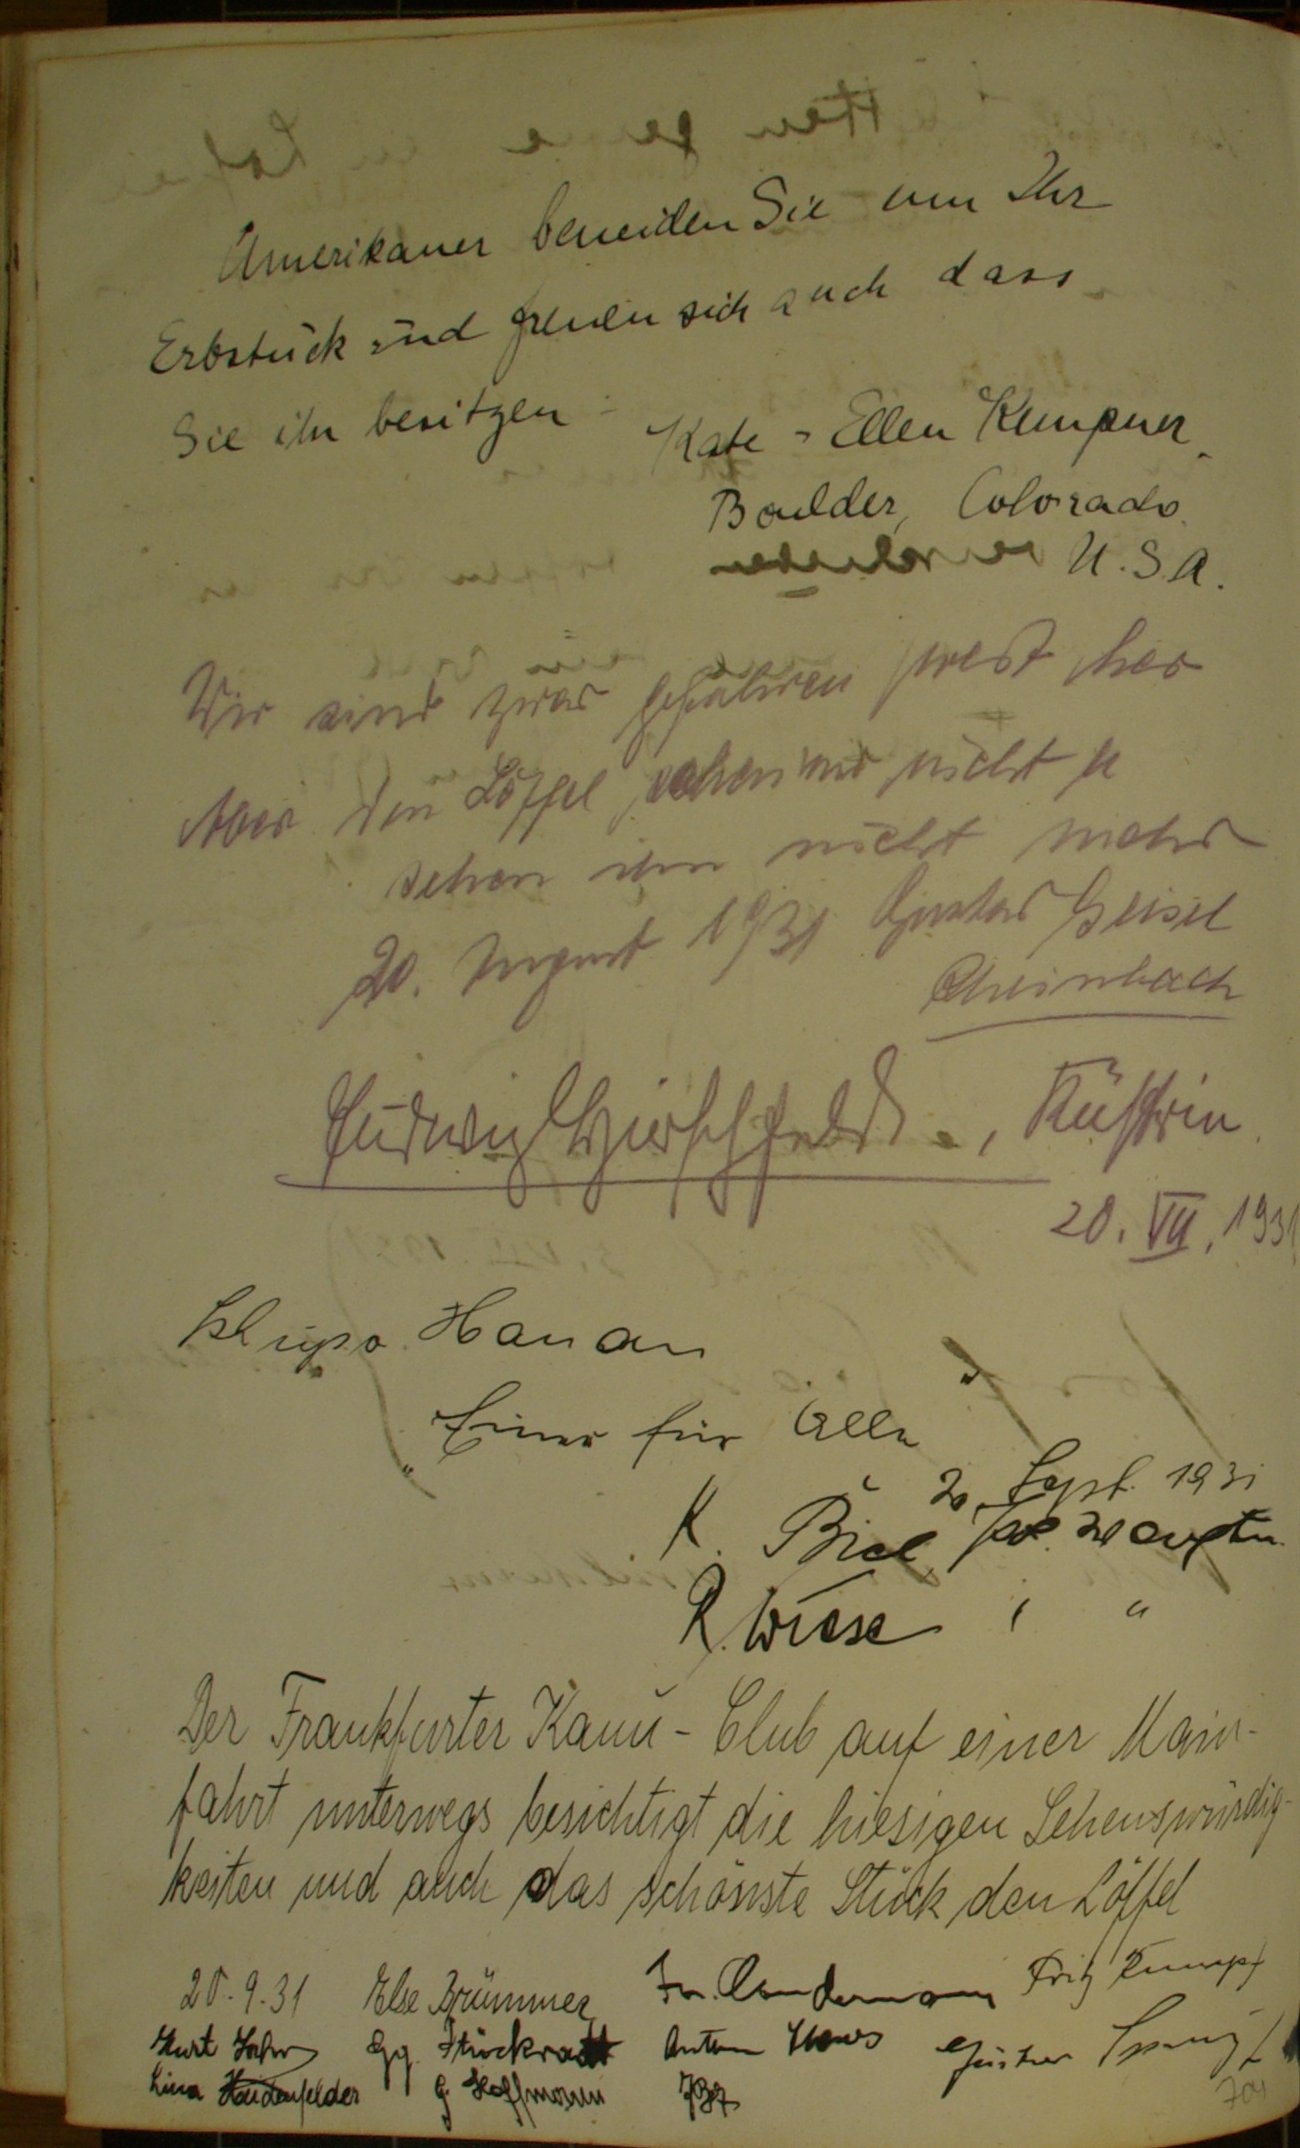 Amerikaner beneiden Sie um Ihr
Erbstück und freuen sich auch dass
Sie ihn besitzen
Kate - Ellen Kempner
Boulder, Colorado
U.S.A.
Wir sind zwar gefahren her
Aber den Löffel wir nicht
sehen ihn nicht mehr
20. August 1931 Gustav Geisel
Rheinbach
Ludwig Hirschfeld, Küstrin
20. VII. 1931
Schupo Hanau
"Einer für Alle"
20. Sept. 1931
K. Biel
R. Wiese " "
Der Frankfurter Kanu-Club auf einer Main-
fahrt unterwegs besichtigt die hiesigen Sehenswürdig-
keiten und auch das schönste Stück den Löffel
20.9.31 Else Brümmer Fritz Kumpf
Kurt Gg. Stückradt Anton
Lina Haidenfelder G. Hoffmann